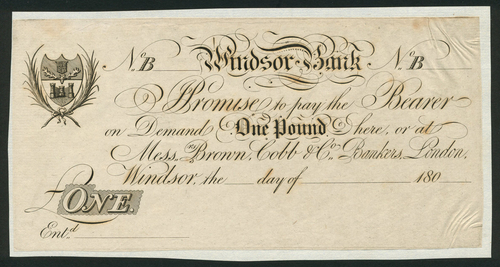 No B Windsor Bank No B
I Promise to pay the Bearer
on Demand One Pound here, or at
Messrs Brown, Cobb & Co. Bankers, London.
Windsor, the day of 180
£ ONE.
Entd